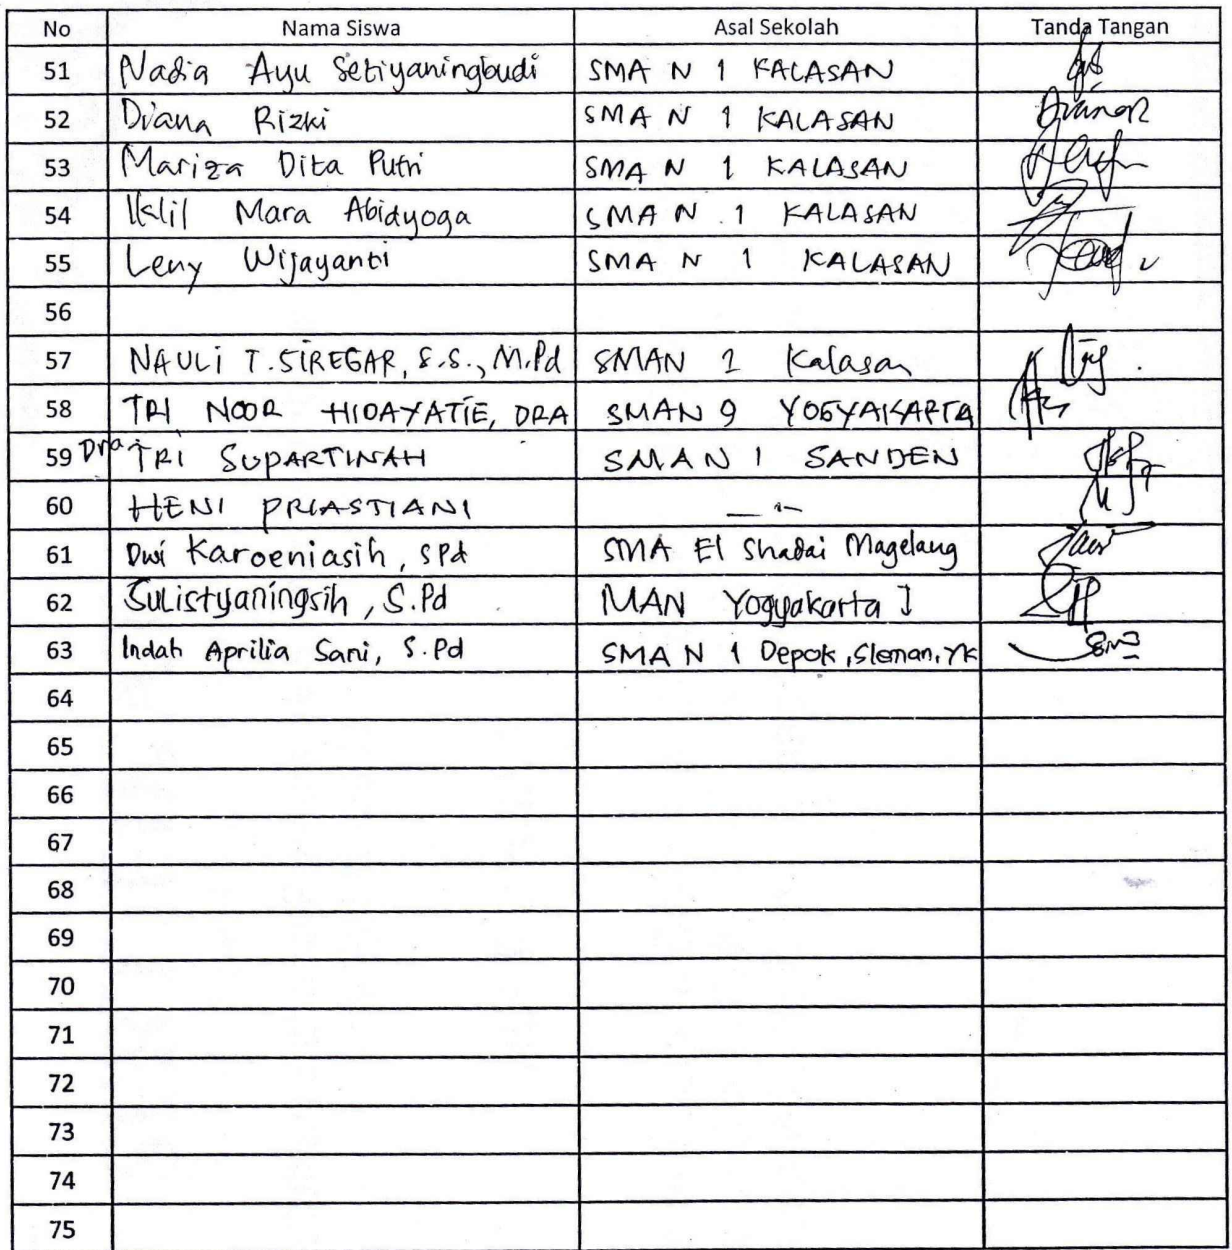 No Nama Siswa Asal Sekolah Tanda Tangan
51 Nadia Ayu Setiyaningbudi SMA N 1 KALASAN
52 Diana Rizki SMA N 1 KALASAN
53 Mariza Dita Putri SMA N 1 KALASAN
54 Iklil Mara Abidyoga SMA N 1 KALASAN
55 Leny Wijayanti SMA N 1 KALASAN
56
57 NAULI T. SIREGAR, S.S., M.Pd SMAN 1 Kalasan
58 TRI NOOR HIDAYATIE, DRA SMAN 9 YOGYAKARTA
59 Dra TRI SUPARTINAH SMAN 1 SANDEN
60 HENI PRIASTIANI
61 Dwi Karoeniasih, SPd SMA El Shadai Magelang
62 Sulistyaningsih, S.Pd MAN Yogyakarta I
63 Indah Aprilia Sani, S.Pd SMA N 1 Depok, Sleman, YK
64
65
66
67
68
69
70
71
72
73
74
75